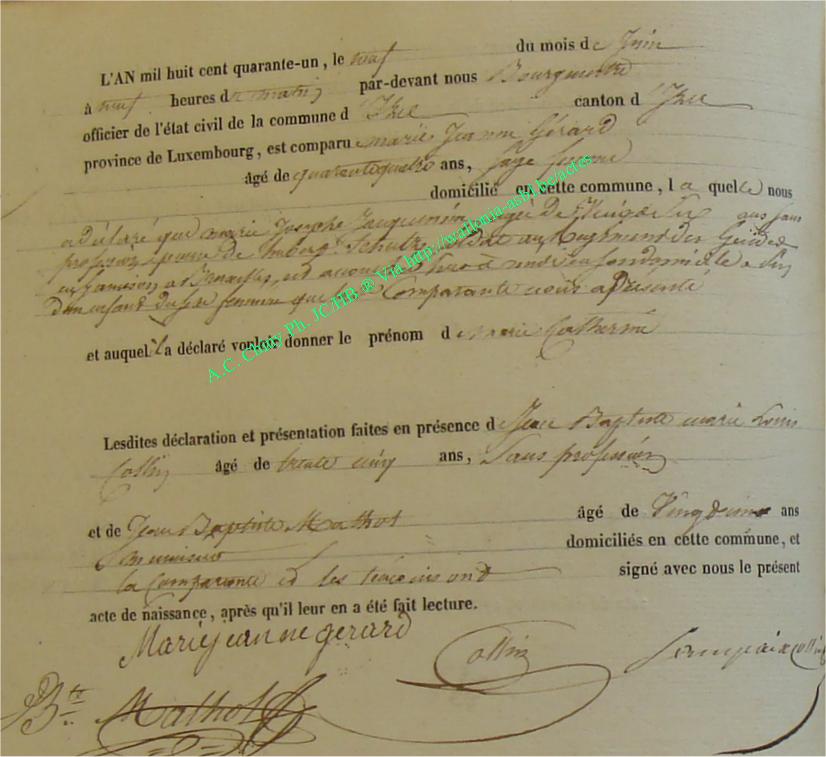 L'AN mil huit cent quarante-un, le neuf du mois de Juin
à neuf heures de matin par-devant nous Bourguemestre
officier de l'état civil de la commune d'Izel canton d'Izel
province de Luxembourg, est comparu marie Jeanne Gérard
âgé de quarante quatre ans, Sage femme
domicilié en cette commune, l a quelle nous
a déclaré que marie Josephe Jacquemin agée de ans sans
profession Epouse de Schultz au Regiment des Guides
en garnison a Bruxelles, est accouchée a onze en son domicile a
d'un enfant du sexe feminin que la Comparante nous a Présenté
et auquel la déclaré vouloir donner le prénom d e Marie Catherine
Lesdites déclaration et présentation faites en présence de Jean Baptiste marie Louis
Collin âgé de trente ans, Sans profession
et de Jean Baptiste Mathot âgé de ans
domiciliés en cette commune, et
la Comparante et les temoins ont signé avec nous le présent
acte de naissance, après qu'il leur en a été fait lecture.
Marie jeanne gerard
Collin
JBte Mathot
A.C. Chiny Ph. JC.HB ® Via http://wallonia-asbl.be/actes